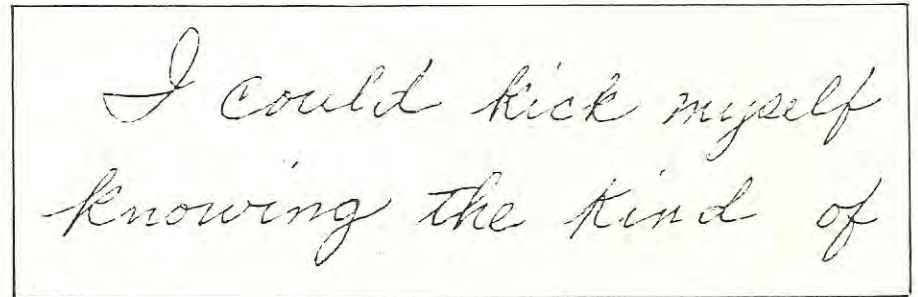 I could kick myself
knowing the kind of